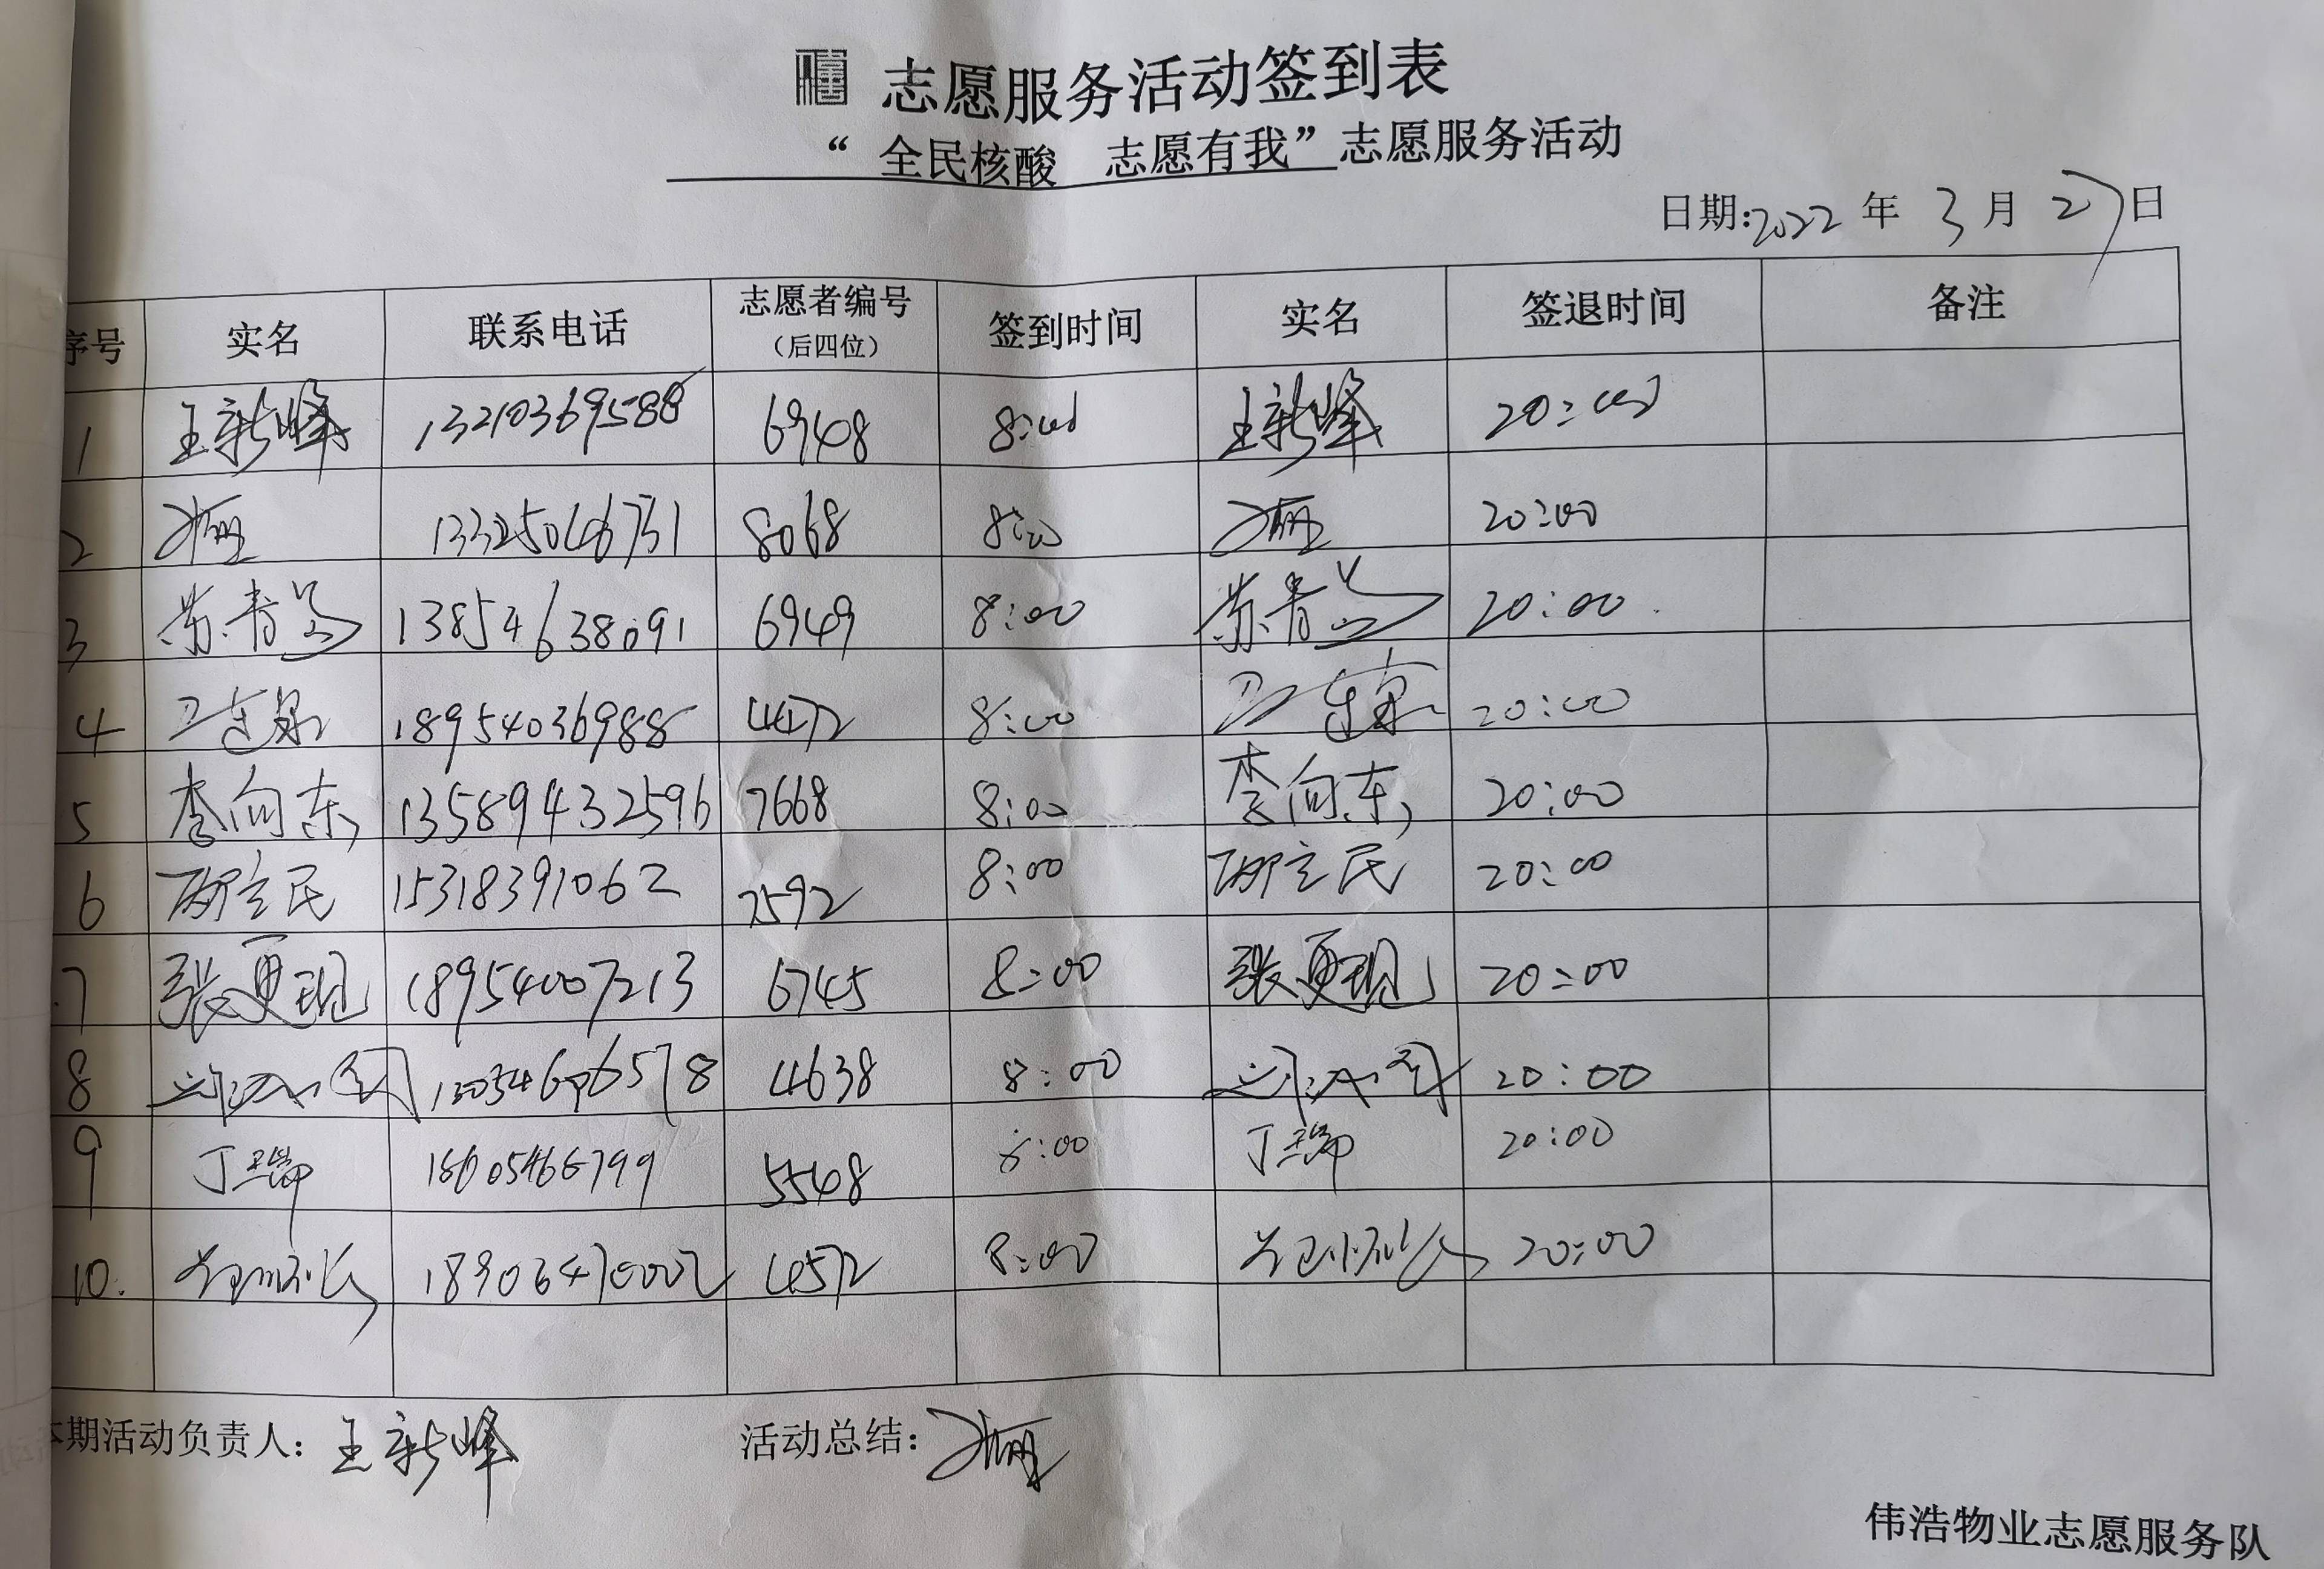 志愿服务活动签到表
“ 全民核酸 志愿有我”志愿服务活动
日期:2022 年 3 月 27日
序号 实名 联系电话 志愿者编号（后四位） 签到时间 实名 签退时间 备注
1 王新峰 13210369588 6948 8:00 王新峰 20:00
2 13325046731 8068 8:00 20:00
3 苏青兰 13854638091 6949 8:00 苏青兰 20:00
4 18954036988 4472 8:00 20:00
5 李向东 135894432596 7668 8:00 李向东 20:00
6 邴立民 15318391062 7592 8:00 邴立民 20:00
7 张更现 18954007213 6745 8:00 张更现 20:00
8 4638 8:00 20:00
9 丁瑞 18605466799 5548 8:00 丁瑞 20:00
10. 4572 8:00 20:00
本期活动负责人：王新峰 活动总结：
伟浩物业志愿服务队